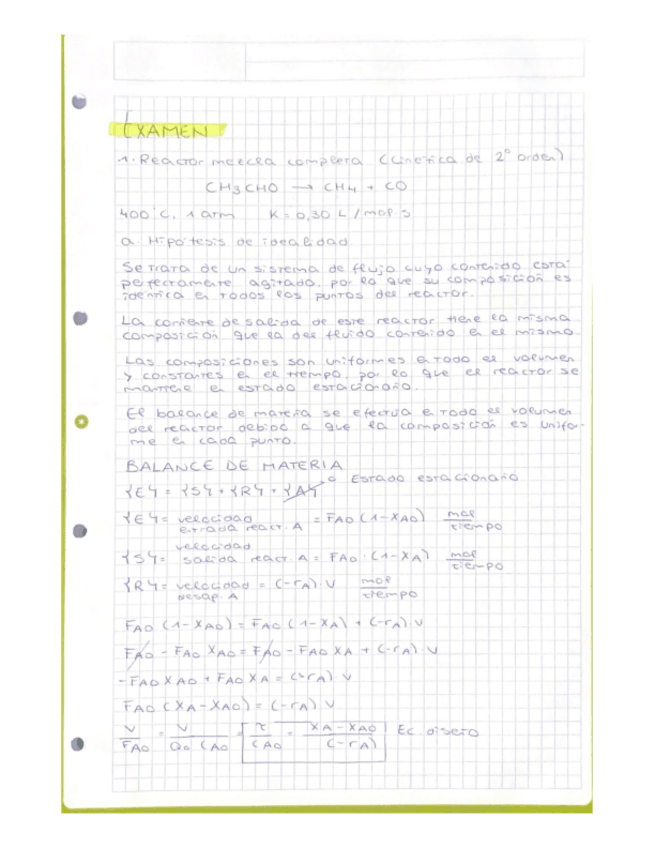 EXAMEN
1. Reactor mezcla completa (Cinética de 2º orden)
CH3CHO → CH4 + CO
400°C, 1 atm K = 0,30 L/mol s
a. Hipótesis de idealidad
Se trata de un sistema de flujo cuyo contenido está
perfectamente agitado, por lo que su composición es
idéntica en todos los puntos del reactor.
La corriente de salida de este reactor tiene la misma
composición que la del fluido contenido en el mismo.
Las composiciones son uniformes en todo el volumen
y constantes en el tiempo, por lo que el reactor se
mantiene en estado estacionario.
El balance de materia se efectúa en todo el volumen
del reactor debido a que la composición es unifor-
me en cada punto.
BALANCE DE MATERIA
{E} = {S} + {R} + {A} 0 Estado estacionario
{E} = velocidad entrada react. A = FA0 (1-XA0) mol/tiempo
{S} = velocidad salida react. A = FA0 · (1-XA) mol/tiempo
{R} = velocidad desap. A = (-rA) · V mol/tiempo
FA0 (1-XA0) = FA0 (1-XA) + (-rA) · V
FA0 - FA0 XA0 = FA0 - FA0 XA + (-rA) · V
-FA0 XA0 + FA0 XA = (-rA) V
FA0 (XA-XA0) = (-rA) V
V/FA0 = V/Q0 CA0 = τ/CA0 = XA-XA0/(-rA) Ec. diseño